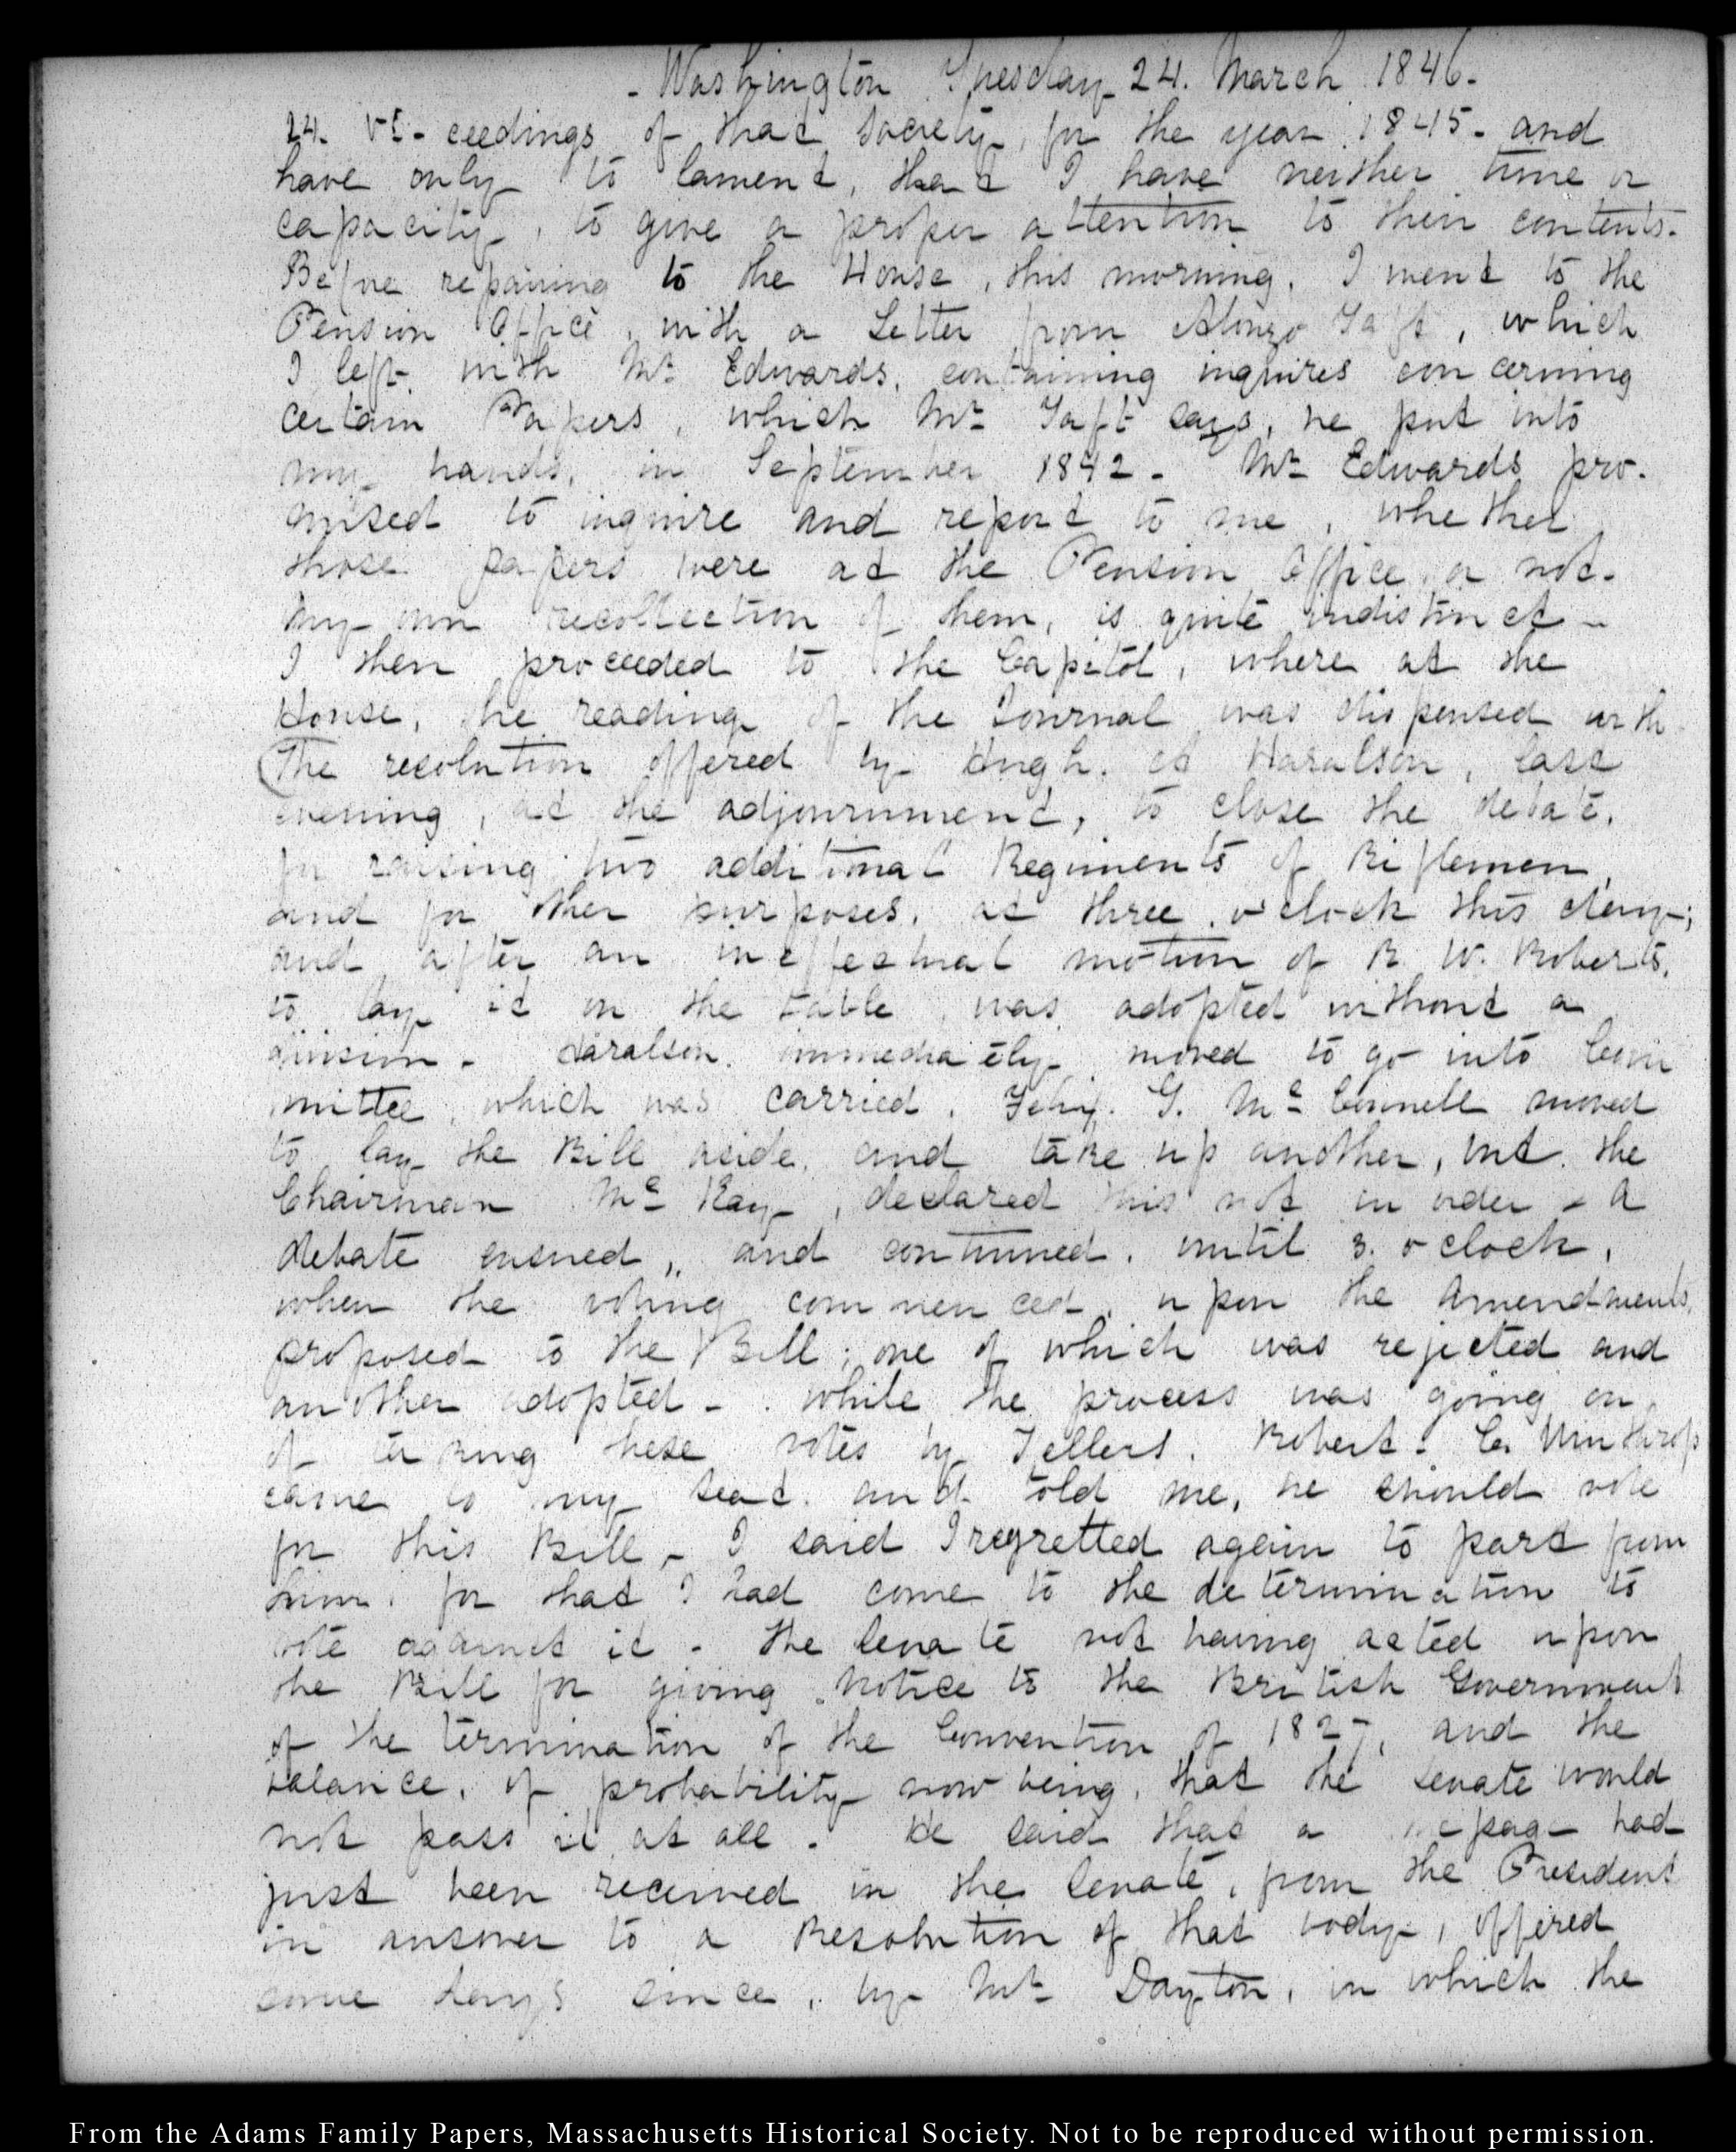 - Washington Tuesday 24. March 1846.
24. VI.- ceedings of that Society, for the year 1845- and
have only to lament, that I have neither time or
capacity, to give a proper attention to their contents.
Before repairing to the House, this morning, I went to the
Pension Office, with a Letter from Alonzo Taft, which
I left with Mr Edwards, containing inquires concerning
certain Papers, which Mr Taft says, he put into
my hands, in September 1842- Mr Edwards pro-
mised to inquire and report to me, whether
those papers were at the Pension Office, or not-
my own recollection of them, is quite indistinct-
I then proceeded to the Capitol, where at the
House, the reading of the Journal was dispensed with
(The resolution offered by Hugh. A Haralson, last
evening, at the adjournment, to close the debate,
for raising two additional Regiments of Riflemen,
and for other purposes, at three o'clock this day;
and after an ineffectual motion of R. W. Roberts,
to lay it on the table, was adopted without a
division- Haralson immediately moved to go into Com
mittee, which was carried. Felix. G. McConnell moved
to lay the Bill aside, and take up another, but the
Chairman McKay, declared this not in order - A
debate ensued, and continued, until 3. o clock,
when the voting commenced, upon the Amendments,
proposed to the Bill; one of which was rejected and
another adopted-. while the process was going on,
of taking these votes by Tellers, Robert. C. Winthrop
came to my seat. and told me, he should vote
for this Bill- I said I regretted again to part from
him, for that I had come to the determination to
vote against it - the Senate not having acted upon
the Bill for giving Notice to the British Government
of the termination of the Convention of 1827, and the
balance, of probability now being, that the Senate would
not pass it at all. He said that a message had
just been received in the Senate, from the President
in answer to a Resolution of that body, offered
some days since, by Mr Dayton, in which the
From the Adams Family Papers, Massachusetts Historical Society. Not to be reproduced without permission.